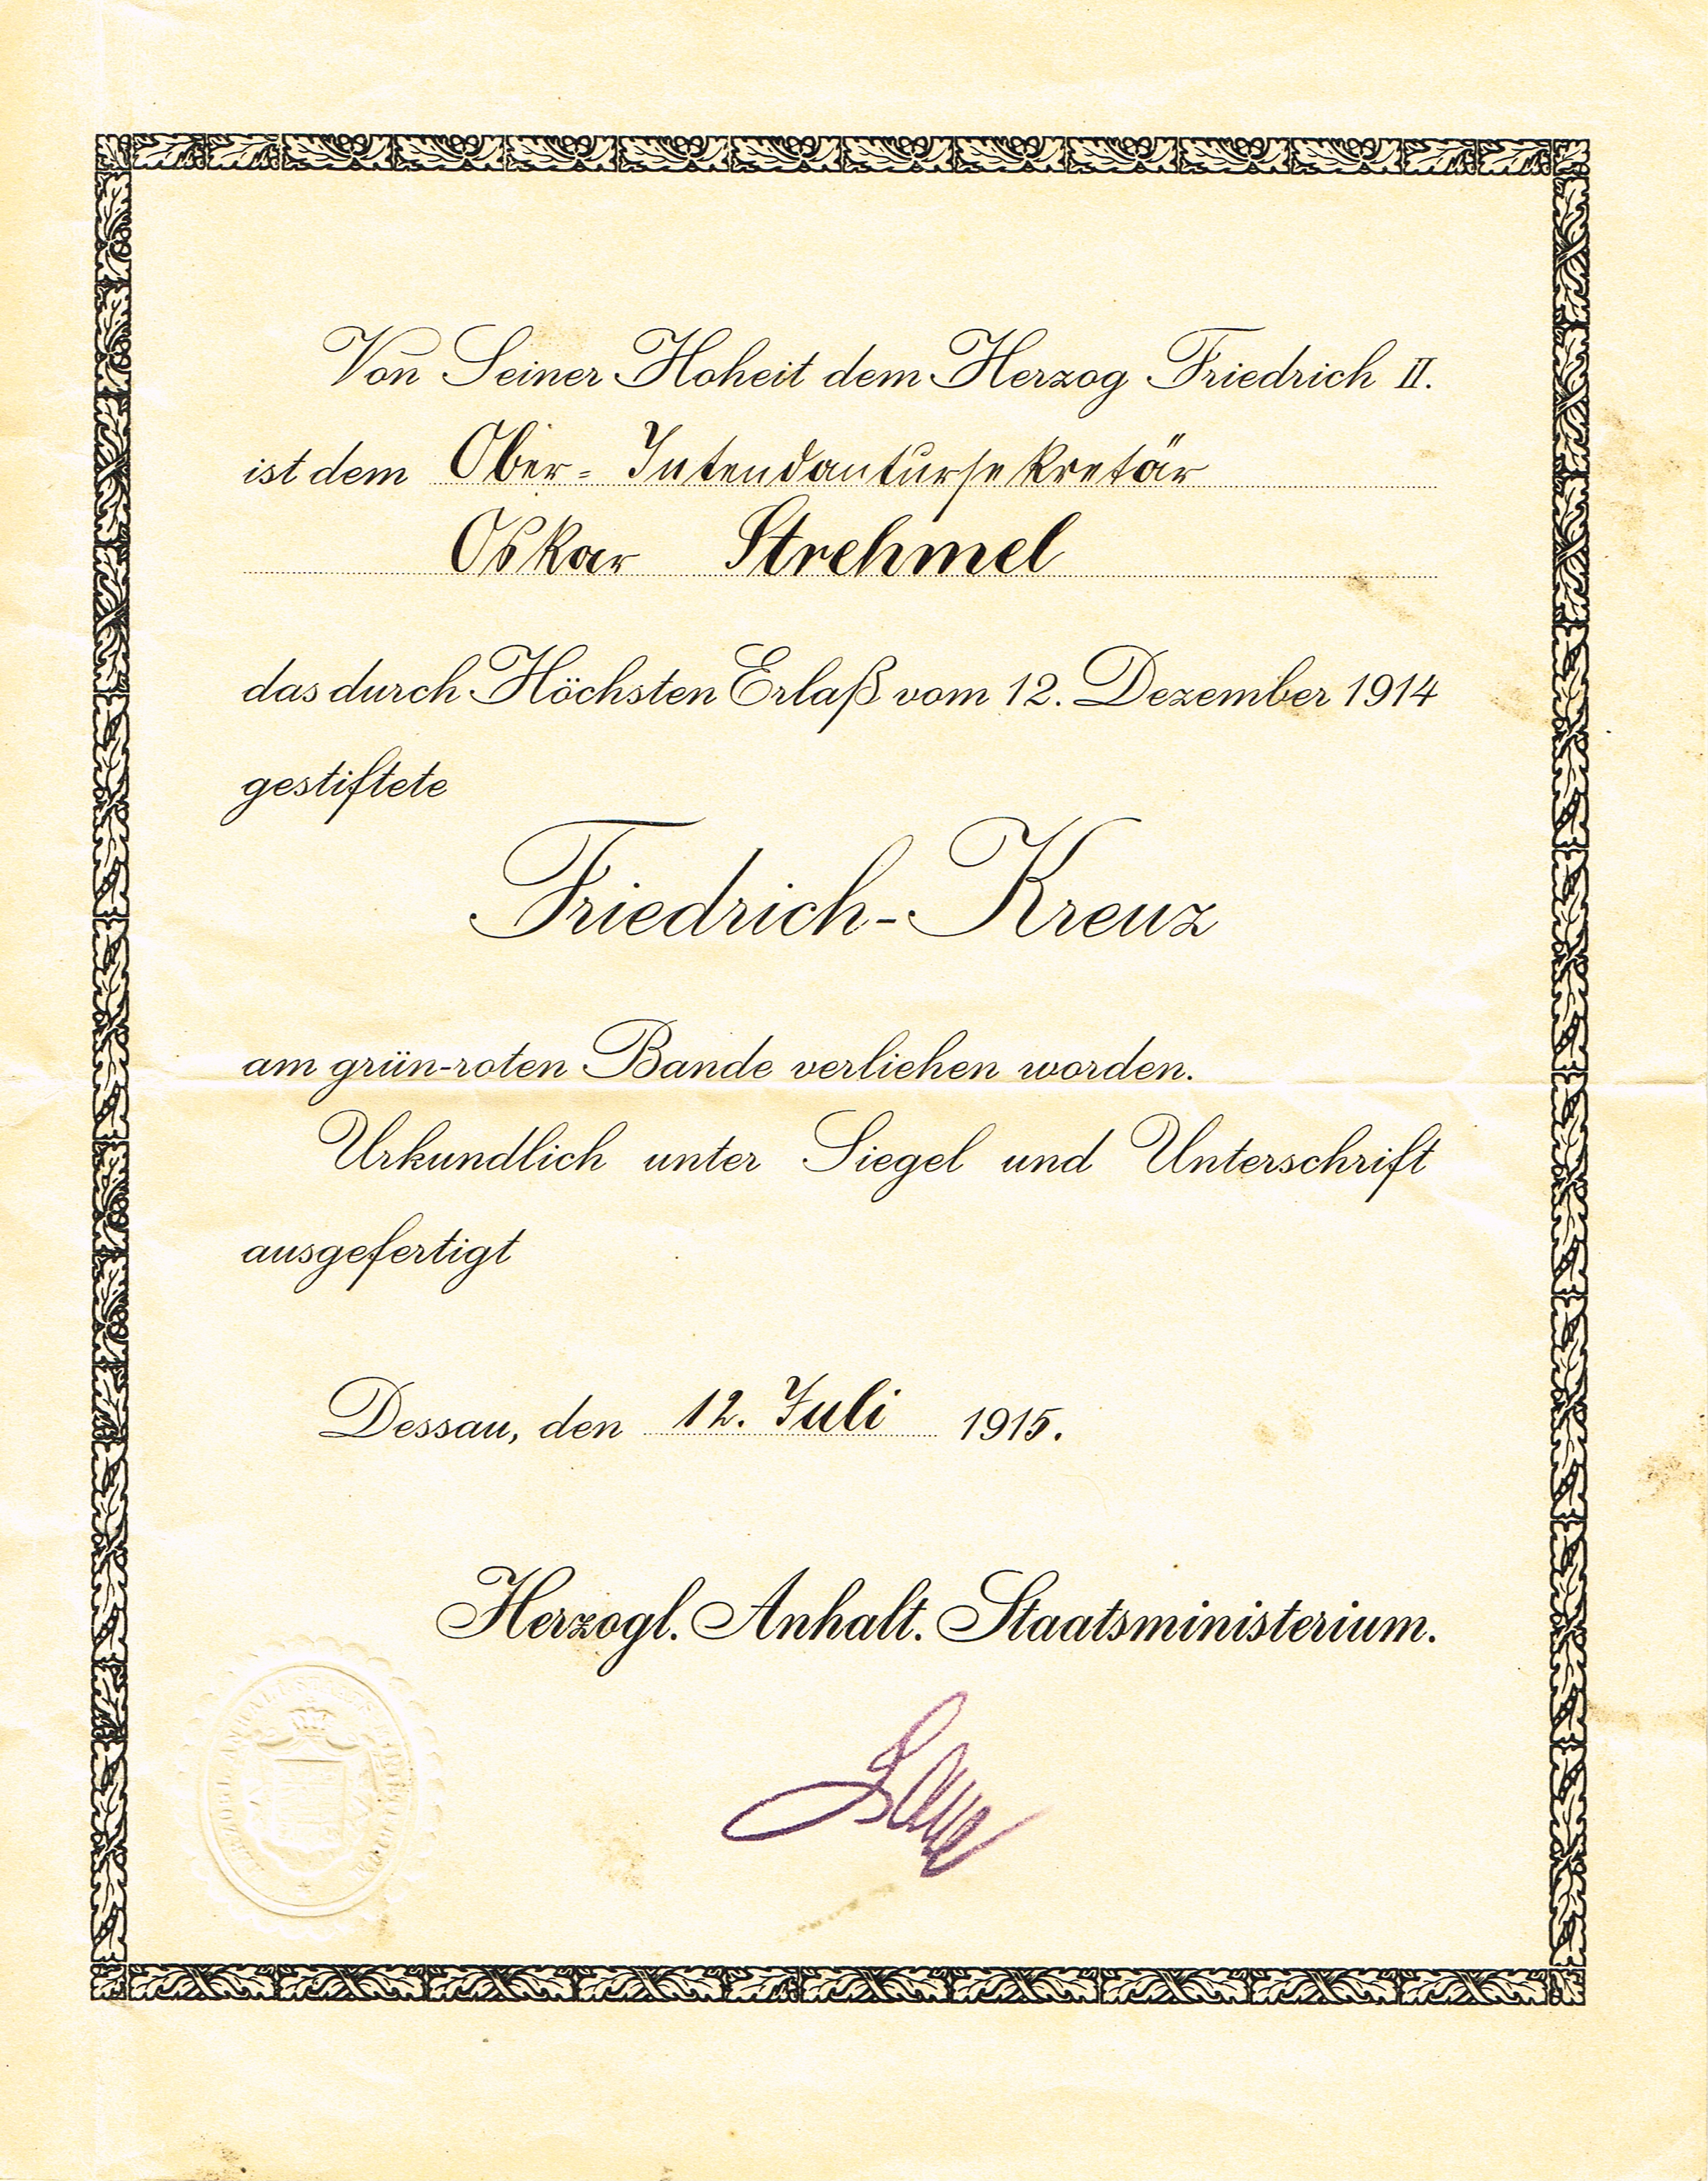 Von Seiner Hoheit dem Herzog Friedrich II.
ist dem Ober-Intendantursekretär
Oskar Strehmel
das durch Höchsten Erlaß vom 12. Dezember 1914
gestiftete
Friedrich-Kreuz
am grün-roten Bande verliehen worden.
Urkundlich unter Siegel und Unterschrift
ausgefertigt
Dessau, den 12. Juli 1915.
Herzogl. Anhalt. Staatsministerium.